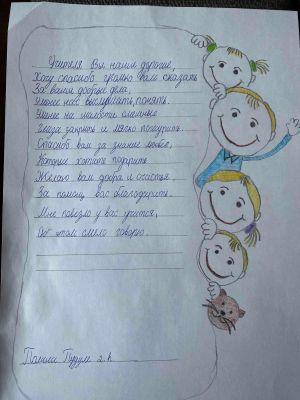 Учителя Вы наши дорогие,
Хочу спасибо громко вам сказать
За ваши добрые дела,
Умение нас выслушать, понять.
Умение на шалости смешные
Глаза закрыть и мягко пожурить.
Спасибо вам за знание новое,
Которые хотите подарить
Желаю вам добра и счастья.
За помощь вас благодарить.
Мне повезло у вас учится,
Об этом смело говорю.
Полина 2 к.